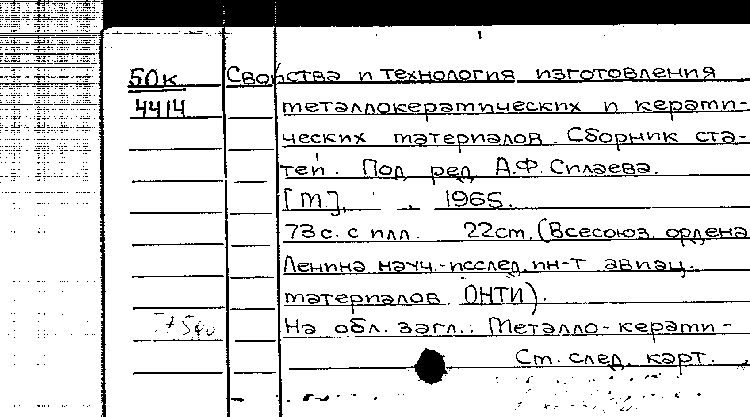 50к Свойства и технология изготовления
44/4 металлокерамических и керами-
ческих материалов. Сборник ста-
тей. Под ред. А.Ф. Силаева.
[М.], 1965.
73 с. с илл. 22 см. (Всесоюз. ордена
Ленина науч.-исслед. ин-т авиац.
материалов. ОНТИ).
На обл. загл.: Металло-керами-
См. след. карт.